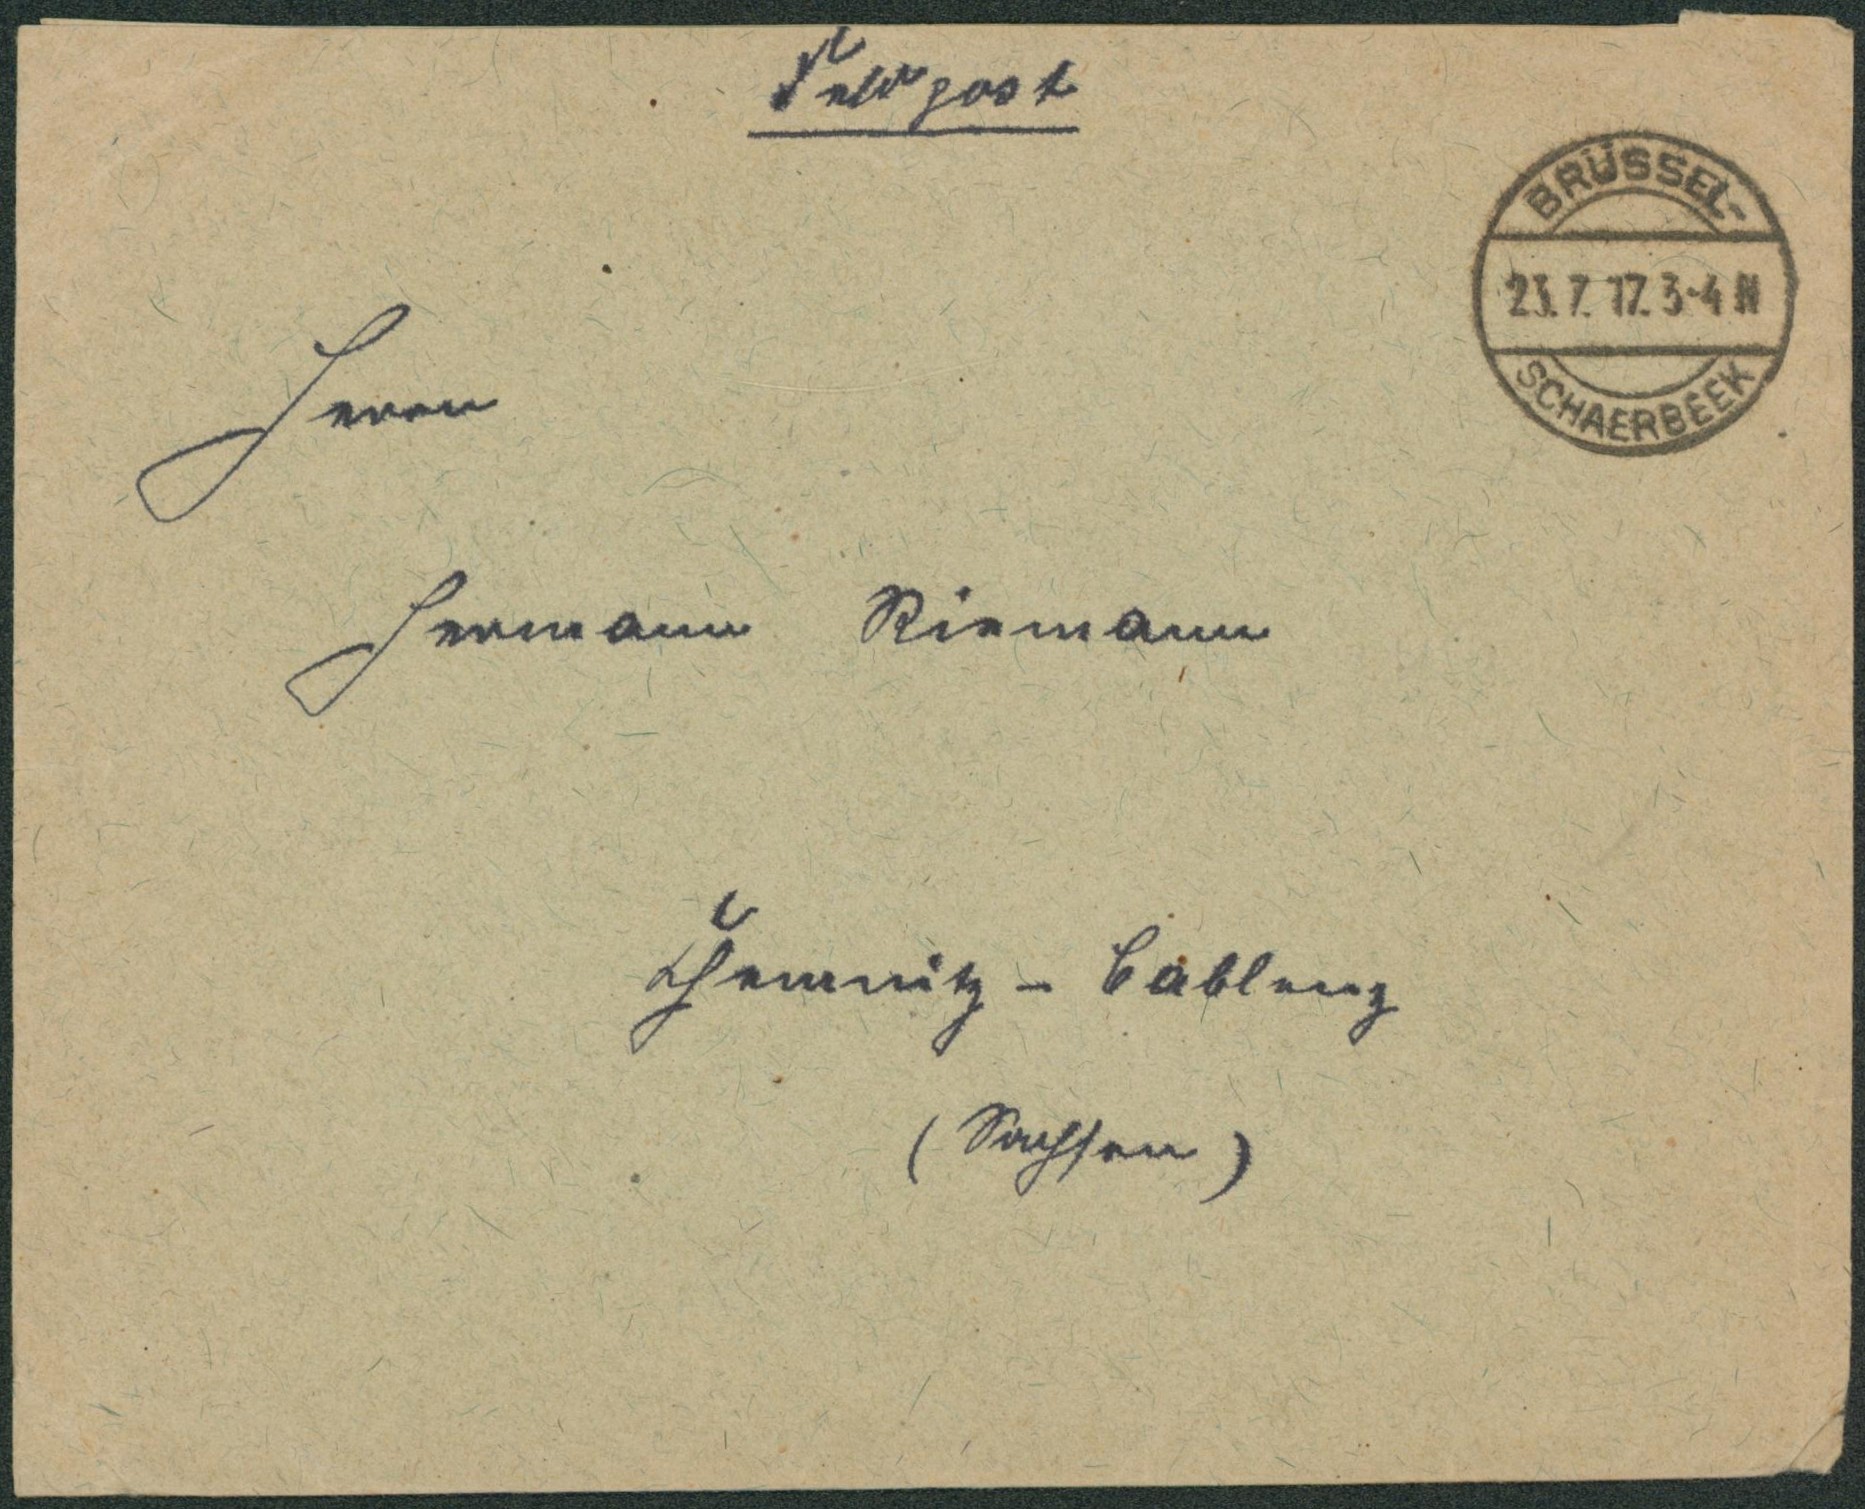 Feldpost
BRÜSSEL-
23.7.17.3-4 N
SCHAERBEEK
Herrn
Hermann Riemann
Chemnitz - Gablenz
(Sachsen)